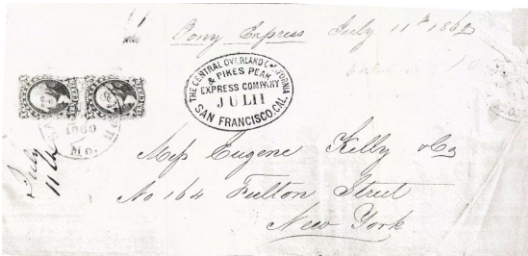 Pony Express July 11th 1860
THE CENTRAL OVERLAND CALIFORNIA
& PIKES PEAK
EXPRESS COMPANY
JUL 11
SAN FRANCISCO, CAL.
1860
MO.
July
11th
Mess Eugene Kelly & Co
No 164 Fulton Street
New York